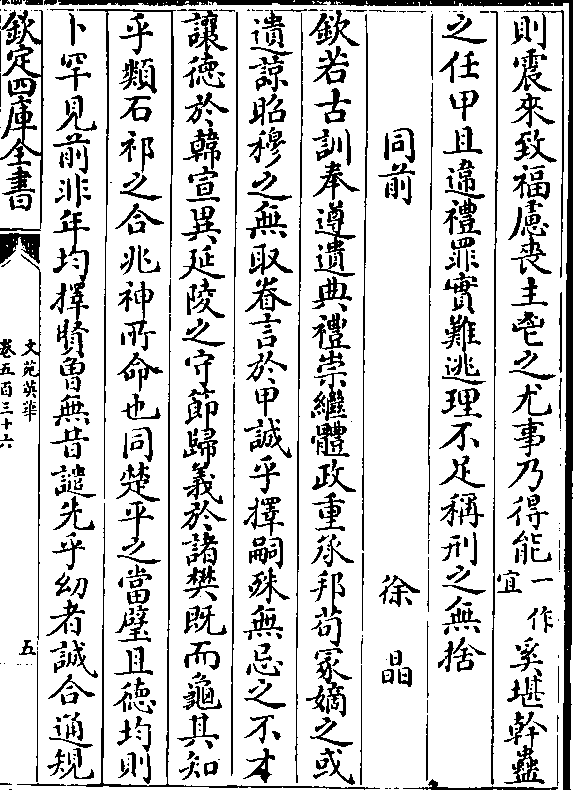 則震來致福慮喪主鬯之尤事乃得能一作宜奚堪幹蠱
之任甲且違禮罪實難逃理不足稱刑之無捨
同前　徐晶
欽若古訓奉遵遺典禮崇繼體政重承邦苟冢嫡之或
遺諒昭穆之無取眷言於甲誠乎擇嗣殊無忌之不才
讓德於韓宣異延陵之守節歸義於諸樊既而龜其知
乎類石祁之合兆神所命也同楚平之當璧且德均則
卜罕見前非年均擇賢曾無昔譴先乎幼者誠合通規
欽定四庫全書
文苑英華
卷五百三十六
五